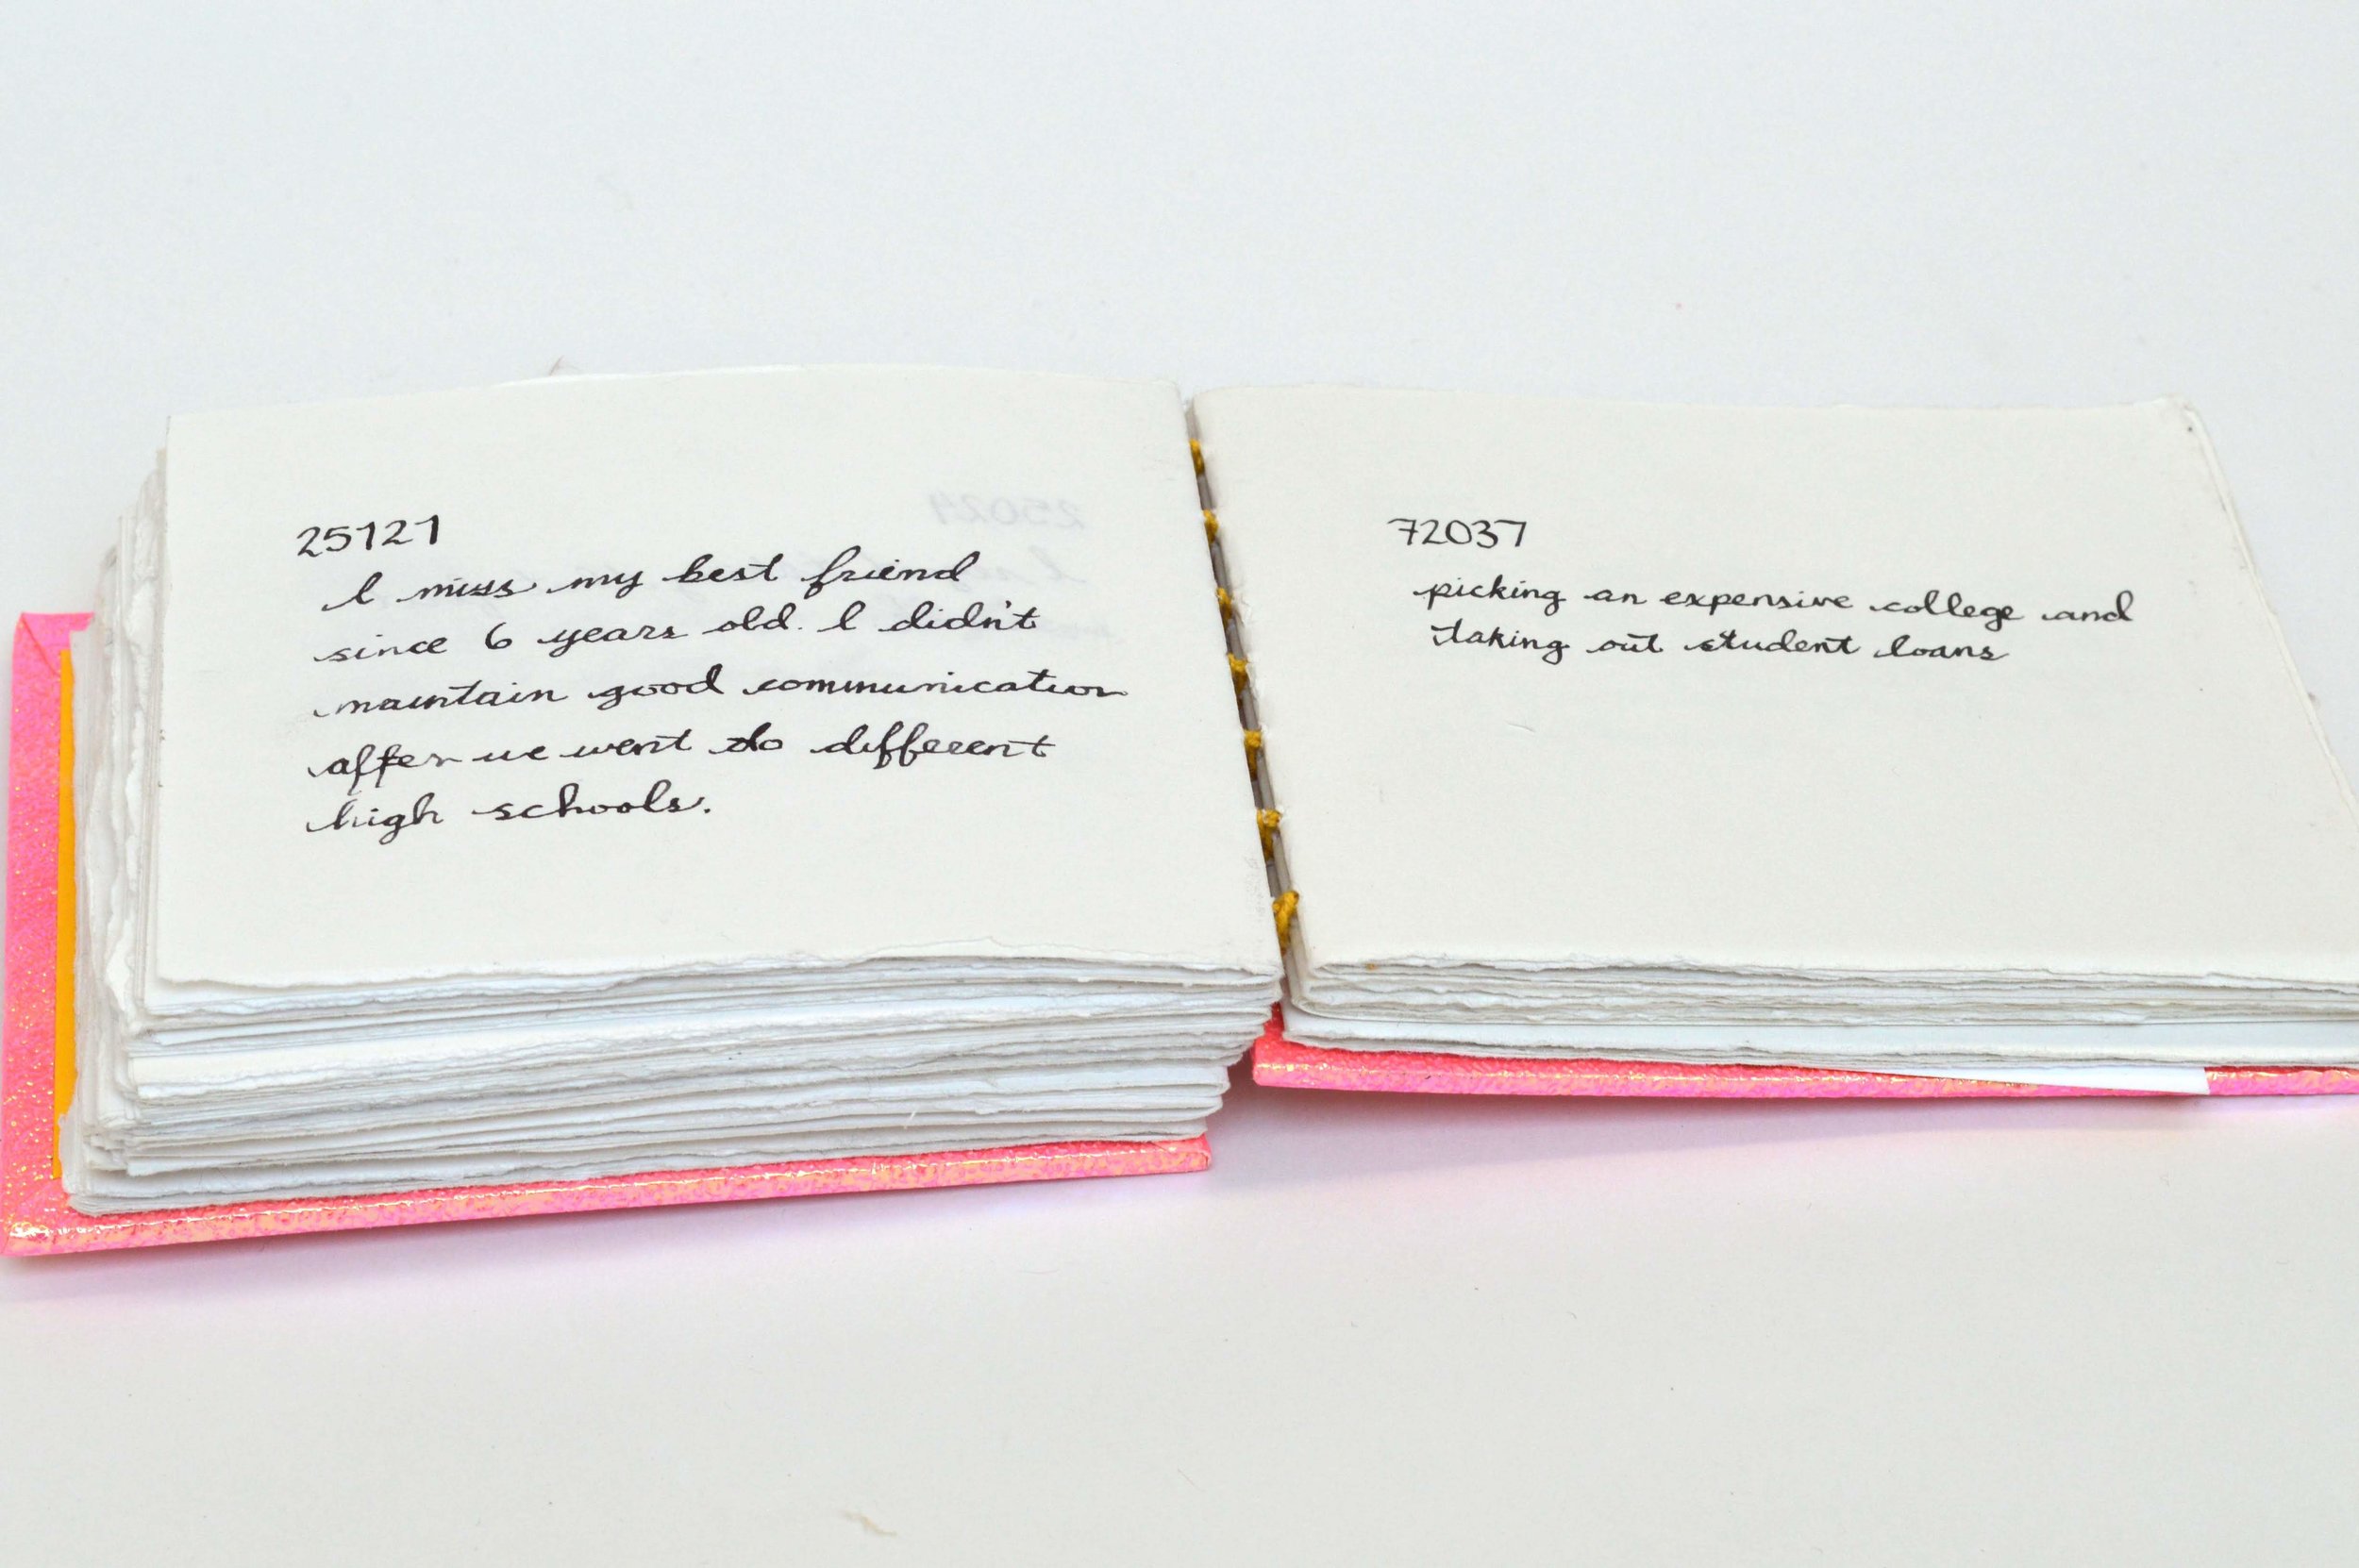 25121
I miss my best friend
since 6 years old. I didn't
maintain good communication
after we went to different
high schools.
72037
picking an expensive college and
taking out student loans